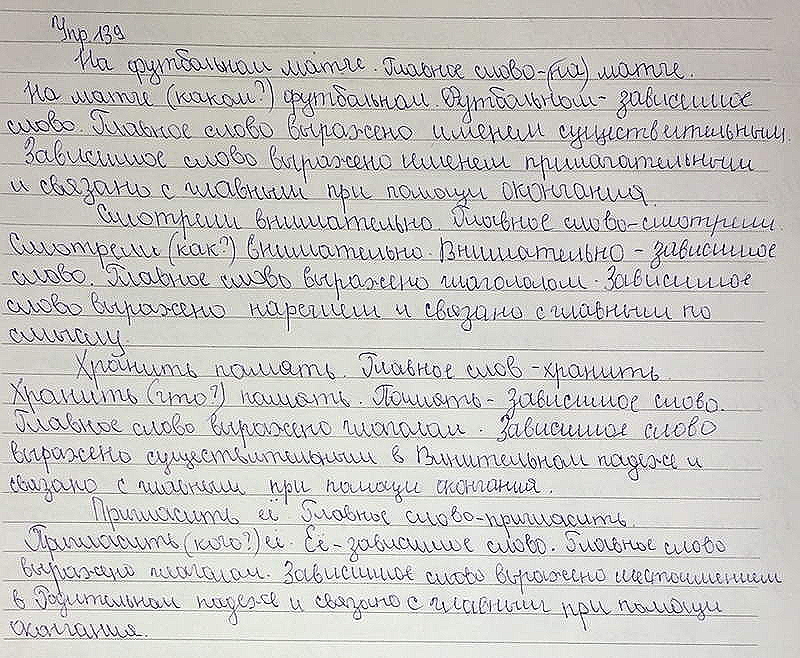 Упр 139
На футбольном матче. Главное слово-(на) матче.
На матче (каком?) футбольном. Футбольном - зависимое
слово. Главное слово выражено именем существительным.
Зависимое слово выражено именем прилагательным
и связано с главным при помощи окончания.
Смотрели внимательно. Главное слово-смотрели.
Смотрели (как?) внимательно. Внимательно - зависимое
слово. Главное слово выражено глаголом. Зависимое
слово выражено наречием и связано с главным по
смыслу.
Хранить память. Главное слов - хранить.
Хранить (что?) память. Память - зависимое слово.
Главное слово выражено глаголом. Зависимое слово
выражено существительным в Винительном падеже и
связано с главным при помощи окончания.
Пригласить её. Главное слово-пригласить.
Пригласить (кого?) её. Её - зависимое слово. Главное слово
выражено глаголом. Зависимое слово выражено местоимением
в Родительном падеже и связано с главным при помощи
окончания.